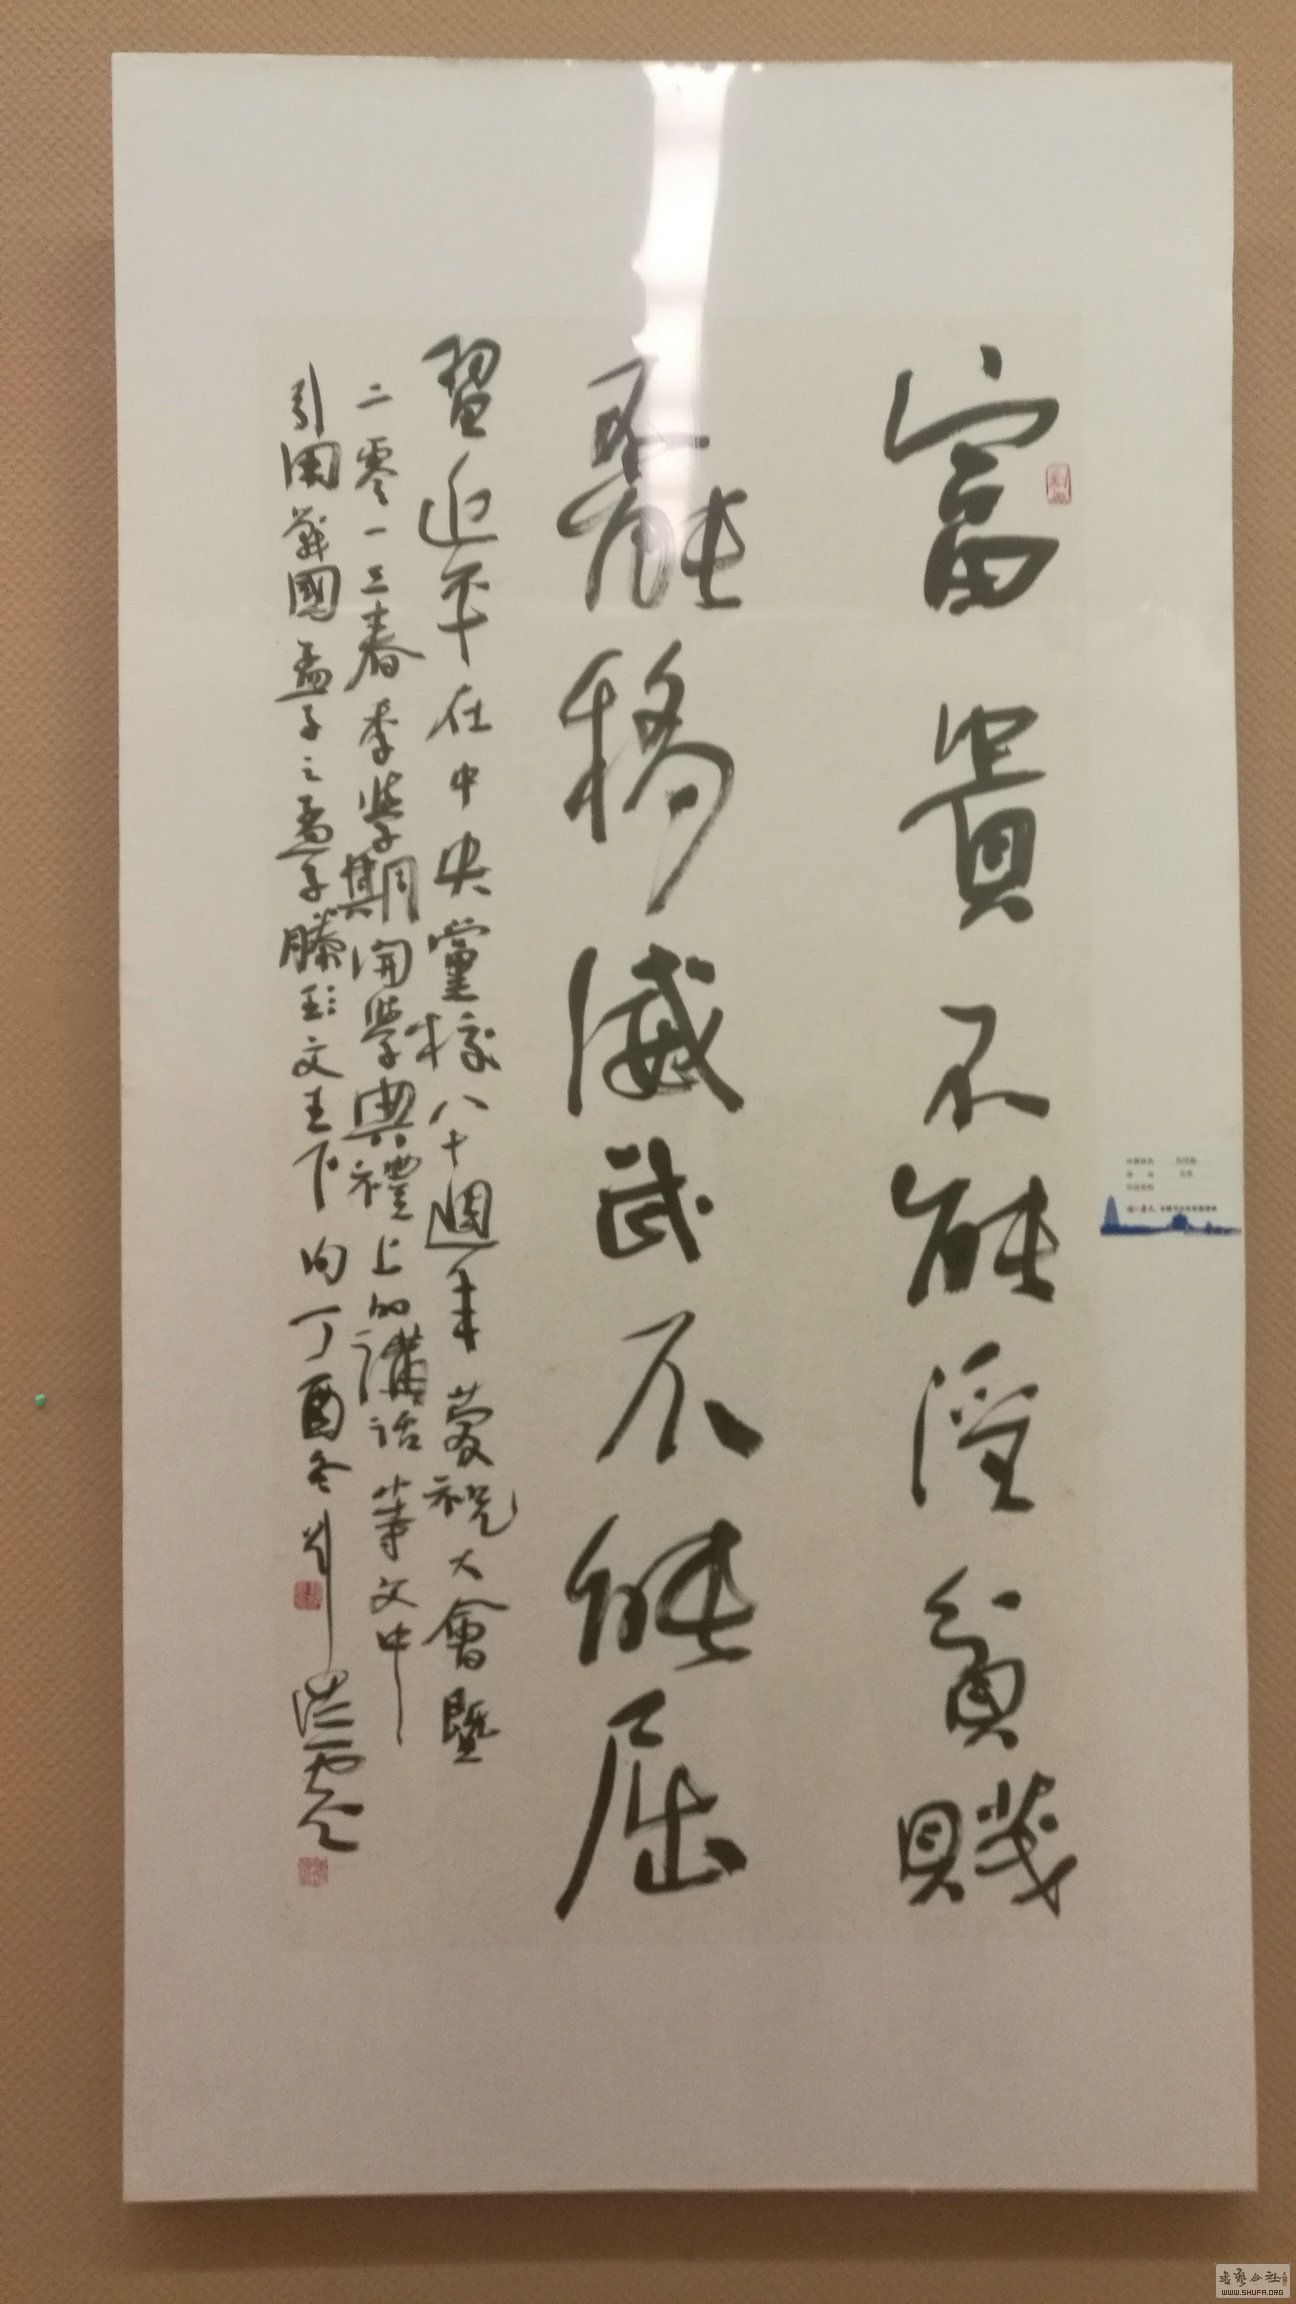 富貴不能淫貧賤
不能移威武不能屈
習近平在中央黨校八十週年慶祝大會暨
二零一三春季學期開學典禮上的講話等文中
引用戰國孟子之孟子滕文公下句丁酉冬劉洪霞
書藝公社
WWW.SHUFA.ORG